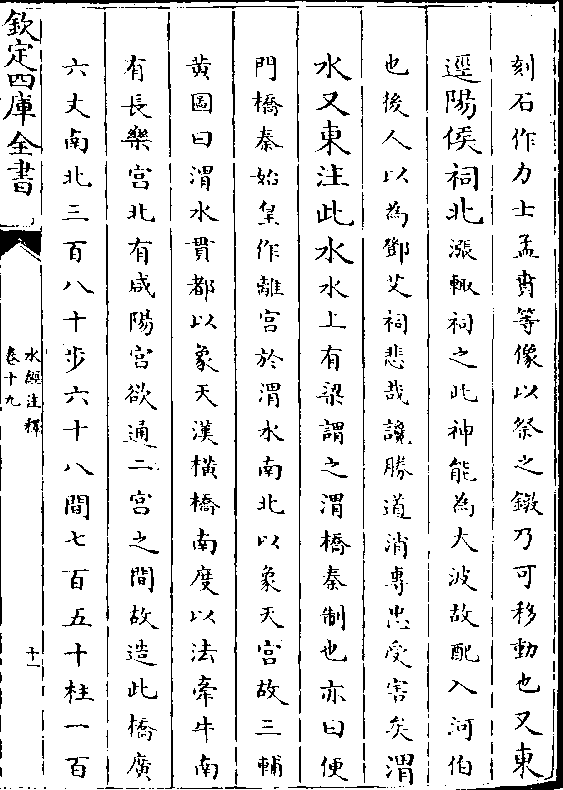 刻石作力士孟賁等像以祭之鐓乃可移動也又東
逕陽侯祠北漲輒祠之此神能為大波故配入河伯
也後人以為鄧艾祠悲哉讒勝道消專忠受害矣渭
水又東注此水水上有梁謂之渭橋秦制也亦曰便
門橋秦始皇作離宮於渭水南北以象天宮故三輔
黄圖曰渭水貫都以象天漢横橋南度以法牽牛南
有長樂宮北有咸陽宮欲通二宮之間故造此橋廣
六丈南北三百八十步六十八間七百五十柱一百
欽定四庫全書
水經注釋
卷十九
十一